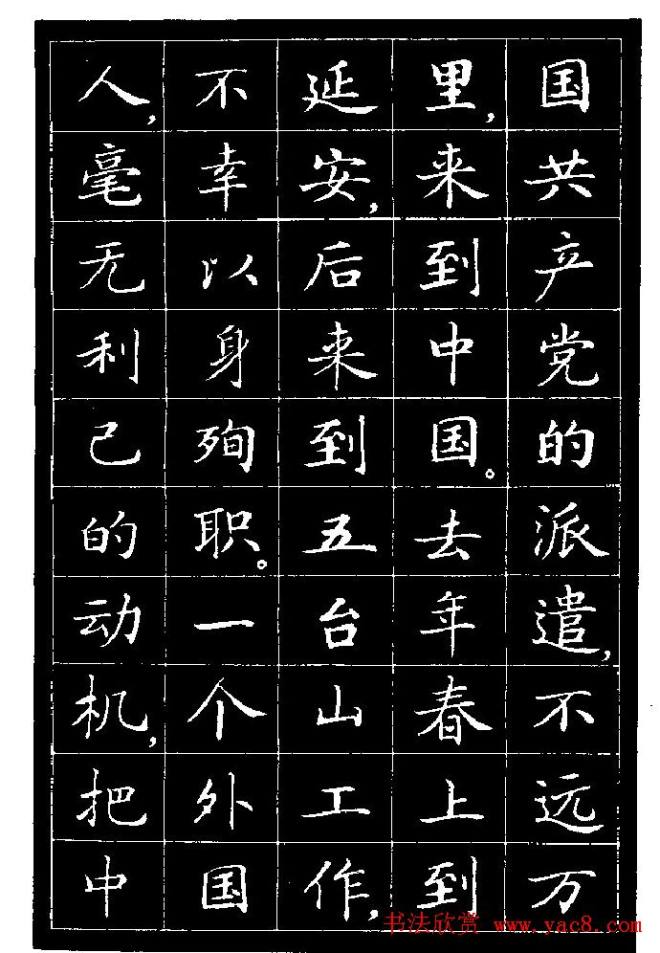 国共产党的派遣,不远万
里,来到中国。去年春上到
延安,后来到五台山工作,
不幸以身殉职。一个外国
人,毫无利己的动机,把中
书法欣赏 www.yac8.com